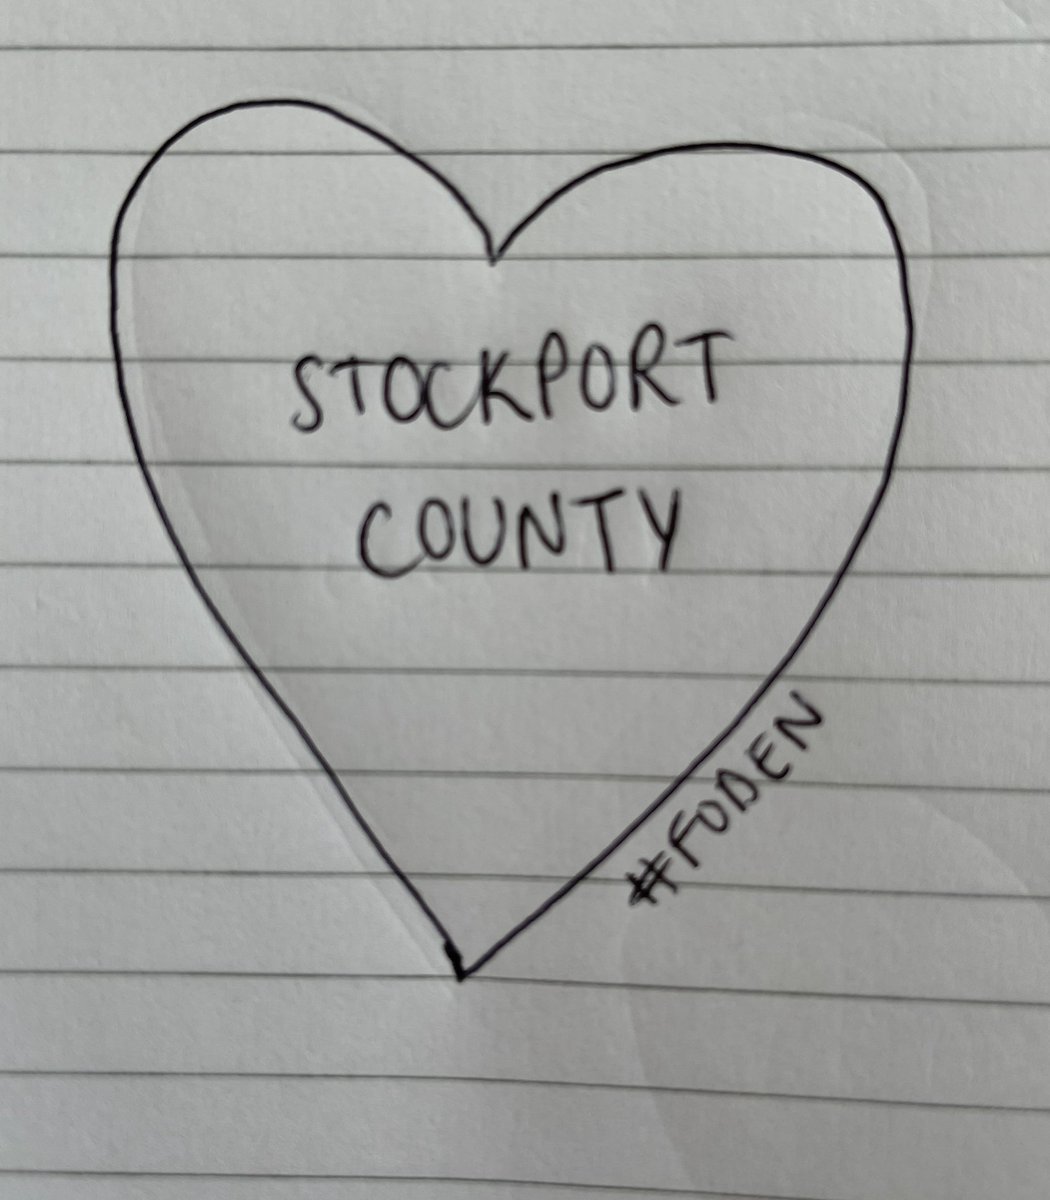 STOCKPORT
COUNTY
#FODEN